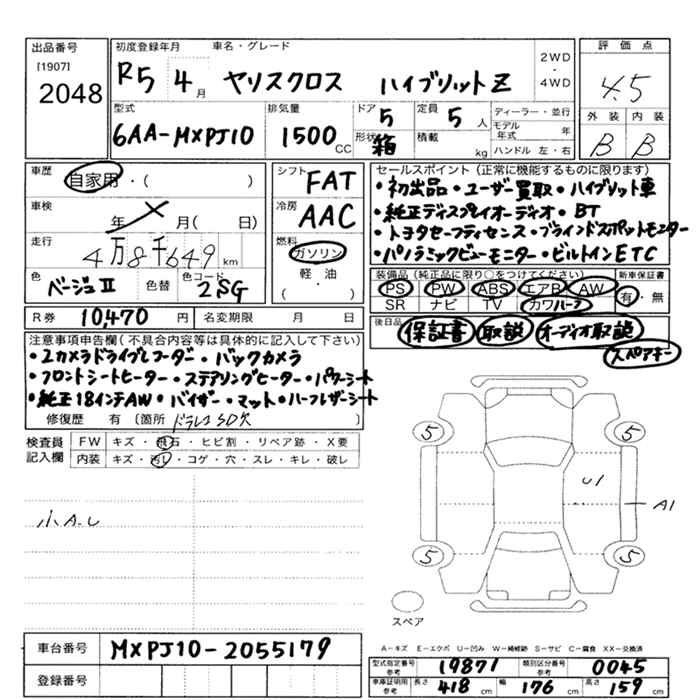 出品番号 初度登録年月 車名・グレード 2WD・4WD 評価点
[1907] 2048 R5 4月 ヤリスクロス ハイブリットZ 4.5
型式 排気量 ドア 5 定員 5人 ディーラー・並行 外装 内装
6AA-MXPJ10 1500CC 形状 箱 積載 kg モデル年式 年 B B
ハンドル 左・右
車歴 自家用・( ) シフト FAT セールスポイント(正常に機能するものに限ります)
・初出品・ユーザー買取・ハイブリット車
車検 年 月( 日) 冷房 AAC ・純正ディスプレイオーディオ・BT
・トヨタセーフティセンス・ブラインドスポットモニター
走行 4万8千649km 燃料 ガソリン 軽・油 ( ) ・パノラミックビューモニター・ビルトインETC
色 ベージュII 色替 色コード 2SG 装備品(純正品に限り○をつけてください) 新車保証書
PS PW ABS エアB AW 有・無
SR ナビ TV カワハーフ
R券 10,470円 名変期限 月 日 後日品 保証書 取説 オーディオ取説
スペアキー
注意事項申告欄(不具合内容等は具体的に記入して下さい)
・2カメラドライブレコーダー・バックカメラ
・フロントシートヒーター・ステアリングヒーター・パワーシート
・純正18インチAW・バイザー・マット・ハーフレザーシート
修復歴 有 〔箇所 ドラレコSD欠
検査員記入欄 FW キズ・飛石・ヒビ割・リペア跡・X要
内装 キズ・汚レ・コゲ・穴・スレ・キレ・破レ
5 5
U1 A1
小A.U
5 5
スペア
A-キズ E-エクボ U-凹み W-補修跡 S-サビ C-腐食 XX-交換済
車台番号 MXPJ10-2055179 型式指定番号 参考 19871 類別区分番号 参考 0045
登録番号 車庫証明用 参考 長さ 418cm 幅 176cm 高さ 159cm